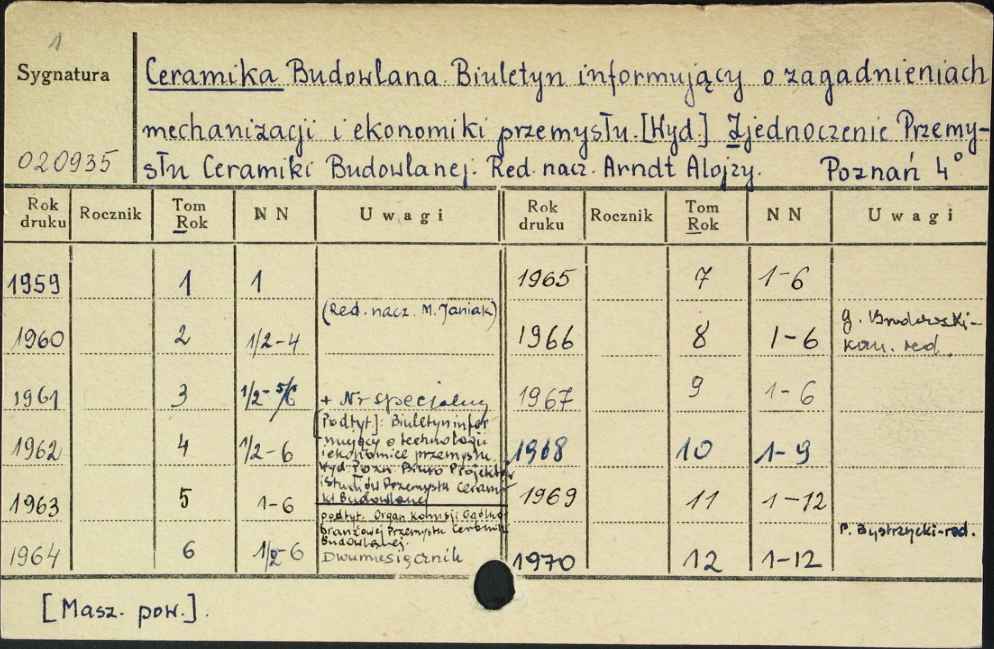 1
Sygnatura
020935
Ceramika Budowlana. Biuletyn informujący o zagadnieniach
mechanizacji i ekonomiki przemysłu. [Wyd.] Zjednoczenie Przemy-
słu Ceramiki Budowlanej. Red. nacz. Arndt Alojzy. Poznań 4°
Rok druku Rocznik Tom Rok N N Uwagi Rok druku Rocznik Tom Rok N N Uwagi
1959 1 1 1965 7 1-6
(Red. nacz. M. Janiak)
1960 2 1/2-4 1966 8 1-6 kom. red.
1961 3 1/2-5/6 + Nr specjalny 1967 9 1-6
[Podtyt]: Biuletyn infor
mujący o technologii
i ekonomice przemysłu
1962 4 1/2-6 1968 10 1-9
Wyd Pozn Biuro Projektów
i Studiów Przemysłu Cerami
ki Budowlanej
1963 5 1-6 1969 11 1-12
podtyt. Organ Komisji Ogólno
branżowej Przemysłu Ceramiki
Budowlanej.
P. Bystrzycki-red.
1964 6 1/2-6 Dwumiesięcznik 1970 12 1-12
[Masz. pow.].